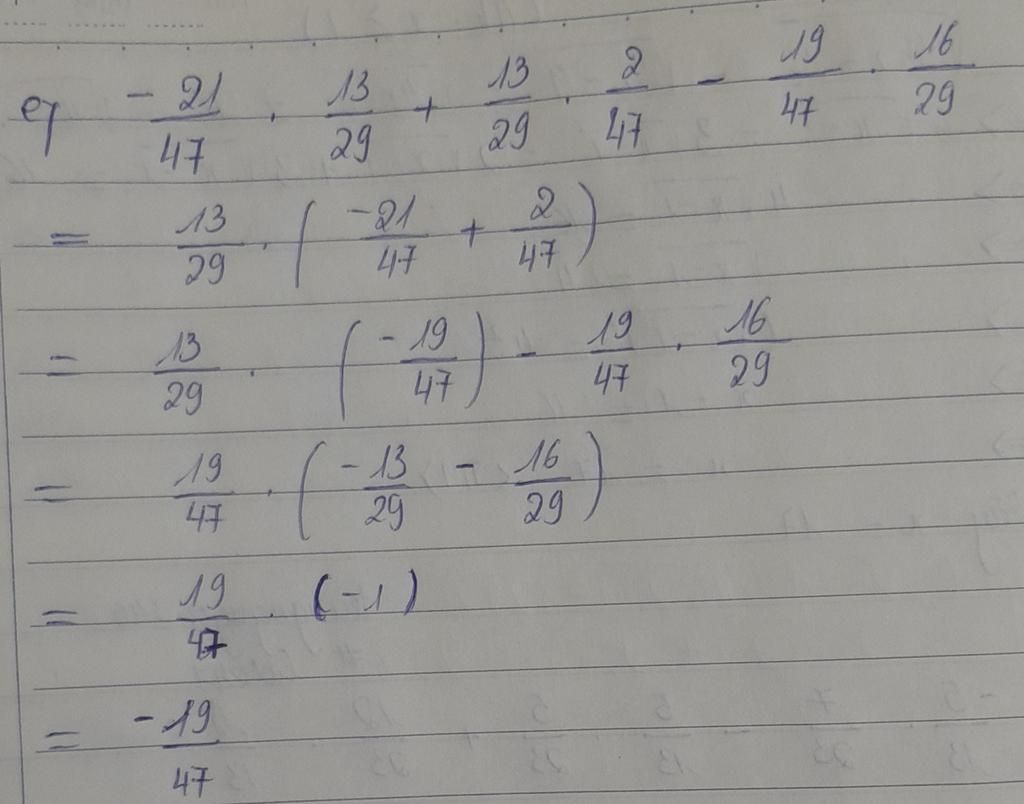 e) -21/47 . 13/29 + 13/29 . 2/47 - 19/47 . 16/29
= 13/29 . (-21/47 + 2/47)
= 13/29 . (-19/47) - 19/47 . 16/29
= 19/47 . (-13/29 - 16/29)
= 19/47 . (-1)
= -19/47